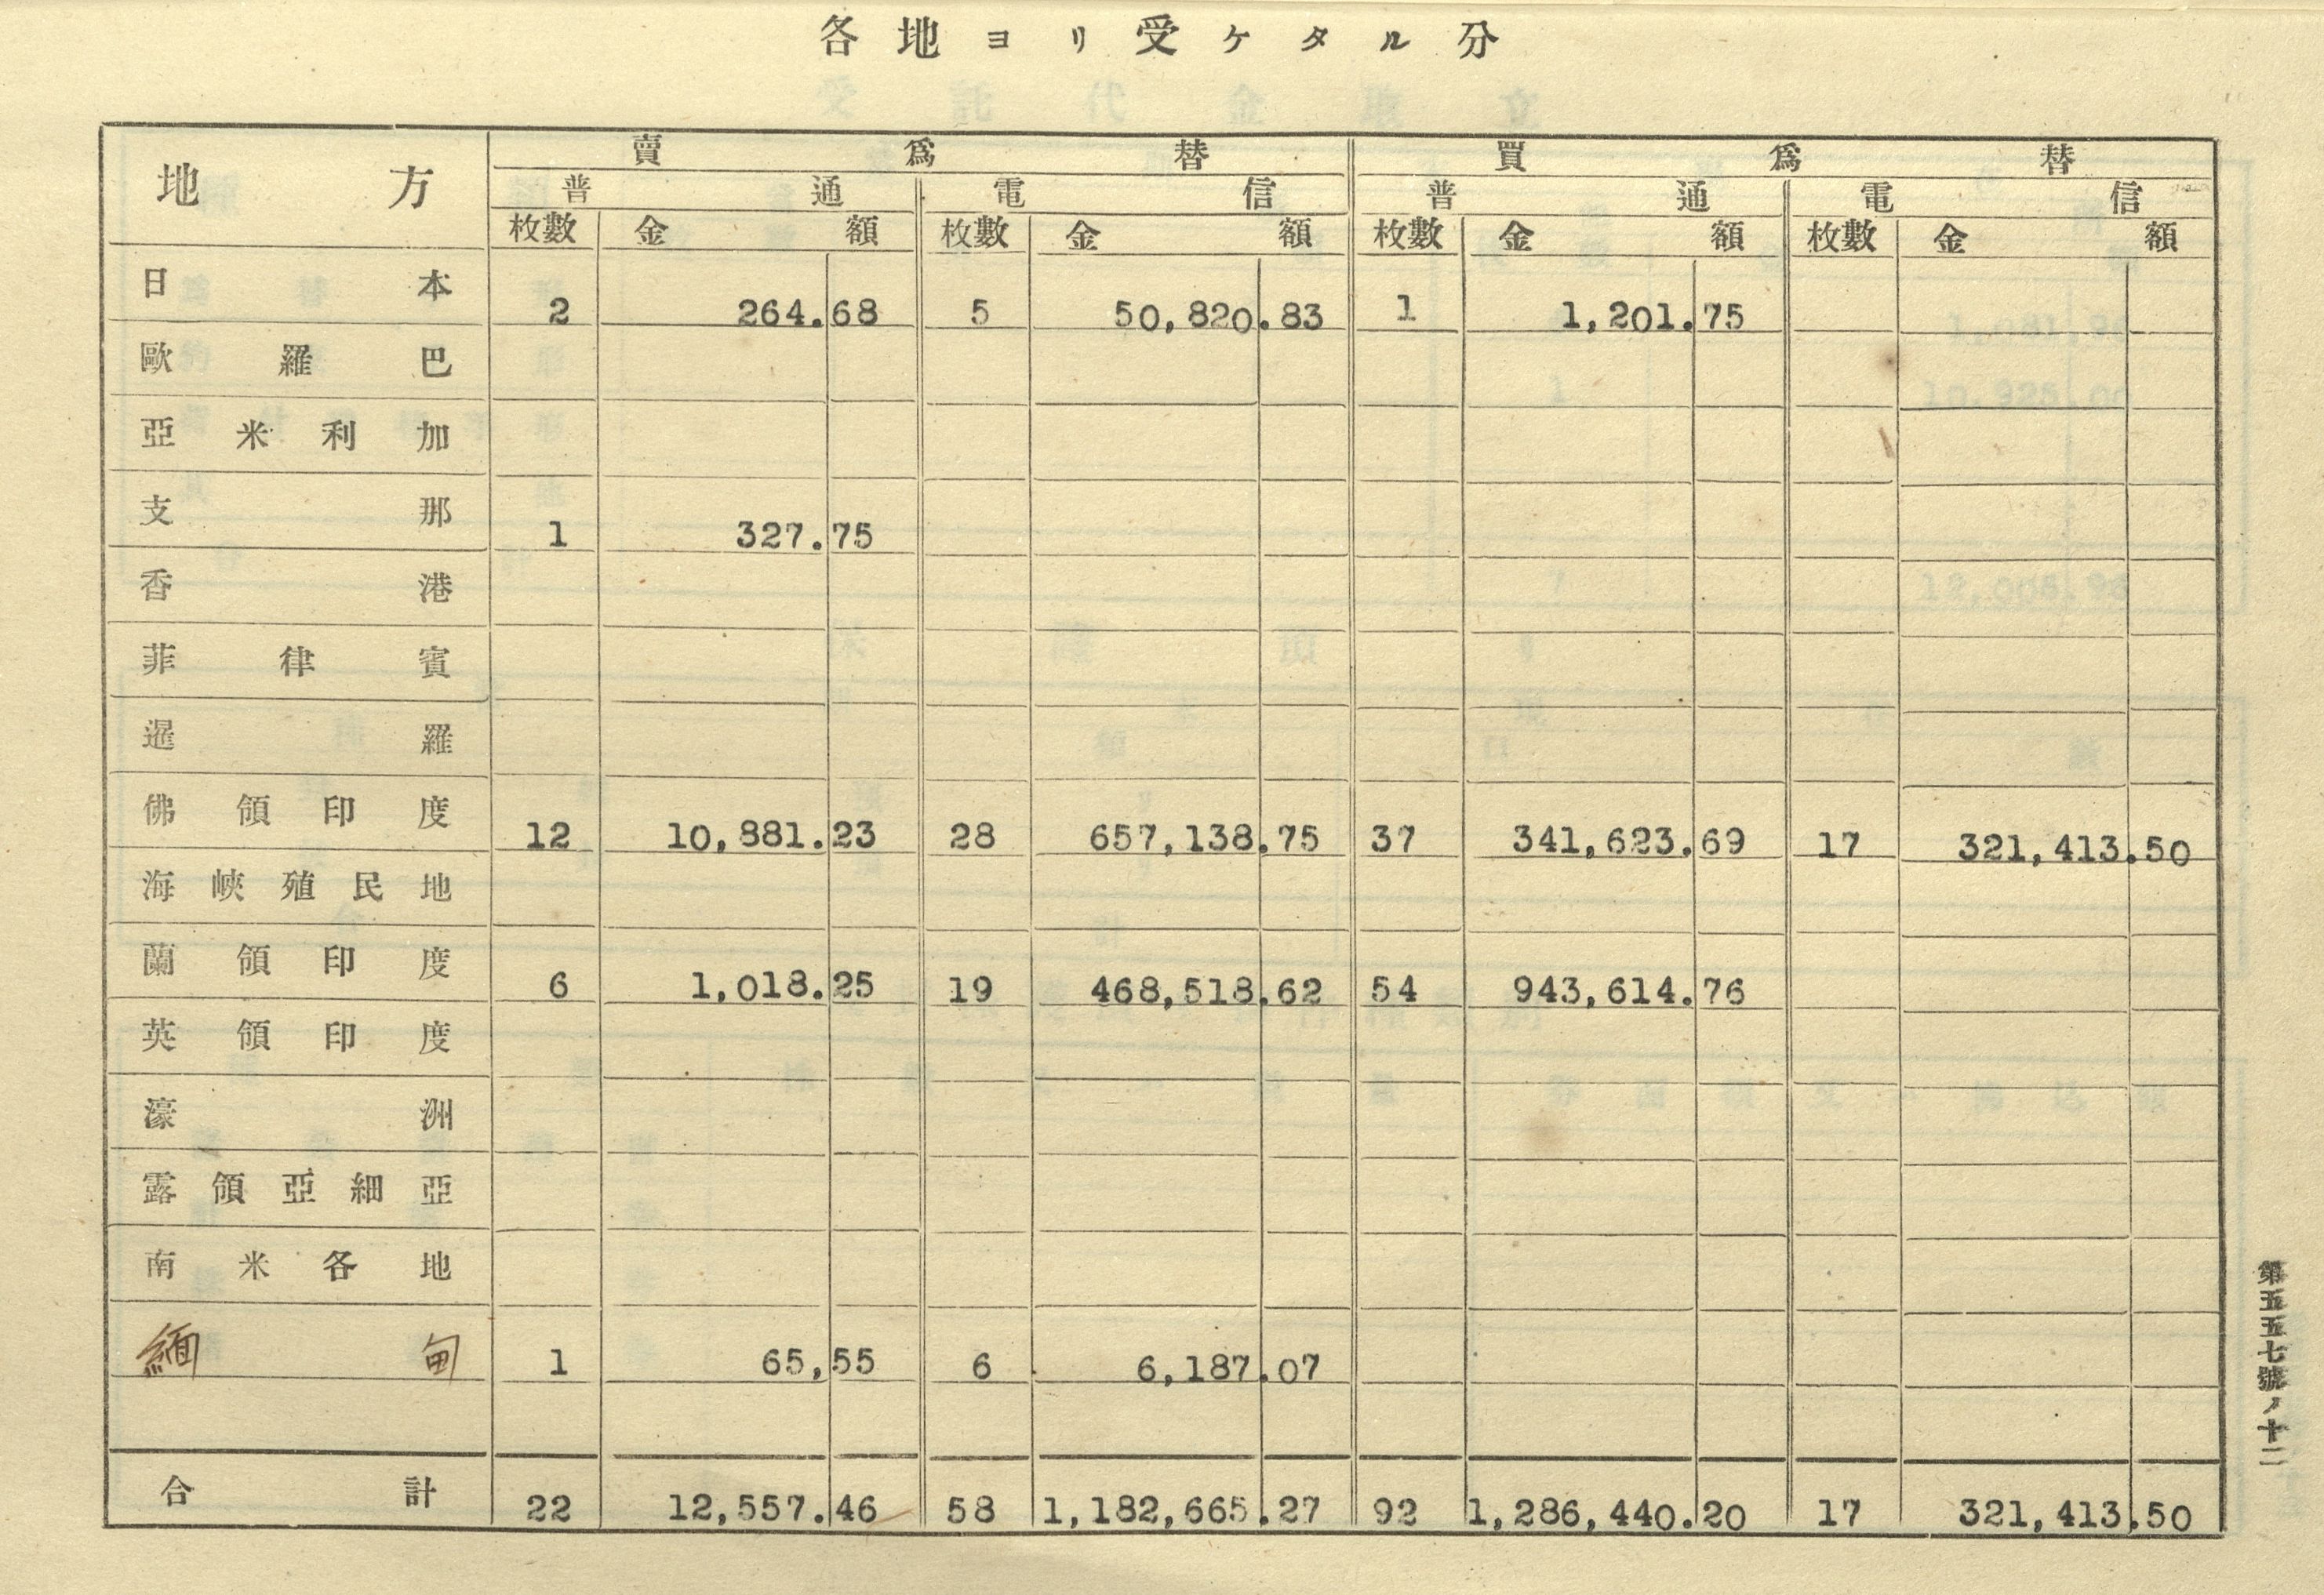 各地ヨリ受ケタル分
地方 賣爲替 買爲替
普通 電信 普通 電信
枚數 金額 枚數 金額 枚數 金額 枚數 金額
日本 2 264.68 5 50,820.83 1 1,201.75
歐羅巴
亞米利加
支那 1 327.75
香港
菲律賓
暹羅
佛領印度 12 10,881.23 28 657,138.75 37 341,623.69 17 321,413.50
海峽殖民地
蘭領印度 6 1,018.25 19 468,518.62 54 943,614.76
英領印度
濠洲
露領亞細亞
南米各地
緬甸 1 65,55 6 6,187.07
合計 22 12,557.46 58 1,182,665.27 92 1,286,440.20 17 321,413.50
第五五七號ノ十二